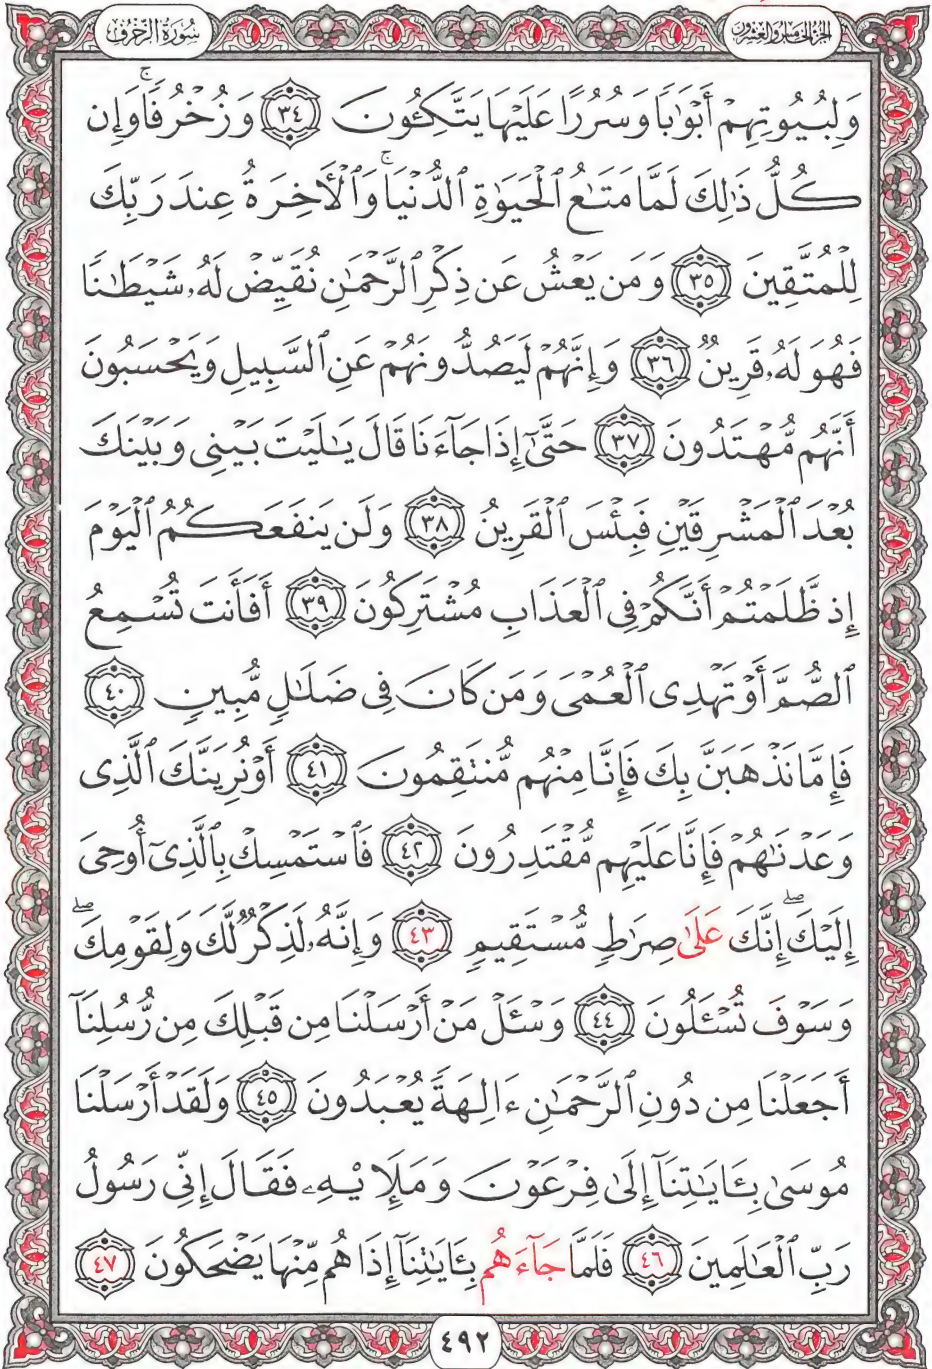 سُورَةُ الزُّخْرُفِ
الجُزْءُ الخَامِسُ وَالعِشْرُونَ
وَلِبُيُوتِهِمْ أَبْوَٰبًا وَسُرُرًا عَلَيْهَا يَتَّكِـُٔونَ ٣٤ وَزُخْرُفًاۚ وَإِن
كُلُّ ذَٰلِكَ لَمَّا مَتَـٰعُ ٱلْحَيَوٰةِ ٱلدُّنْيَاۚ وَٱلْأَخِرَةُ عِندَ رَبِّكَ
لِلْمُتَّقِينَ ٣٥ وَمَن يَعْشُ عَن ذِكْرِ ٱلرَّحْمَـٰنِ نُقَيِّضْ لَهُۥ شَيْطَـٰنًا
فَهُوَ لَهُۥ قَرِينٌ ٣٦ وَإِنَّهُمْ لَيَصُدُّونَهُمْ عَنِ ٱلسَّبِيلِ وَيَحْسَبُونَ
أَنَّهُم مُّهْتَدُونَ ٣٧ حَتَّىٰٓ إِذَا جَآءَنَا قَالَ يَـٰلَيْتَ بَيْنِى وَبَيْنَكَ
بُعْدَ ٱلْمَشْرِقَيْنِ فَبِئْسَ ٱلْقَرِينُ ٣٨ وَلَن يَنفَعَكُمُ ٱلْيَوْمَ
إِذ ظَّلَمْتُمْ أَنَّكُمْ فِى ٱلْعَذَابِ مُشْتَرِكُونَ ٣٩ أَفَأَنتَ تُسْمِعُ
ٱلصُّمَّ أَوْ تَهْدِى ٱلْعُمْىَ وَمَن كَانَ فِى ضَلَـٰلٍ مُّبِينٍ ٤٠
فَإِمَّا نَذْهَبَنَّ بِكَ فَإِنَّا مِنْهُم مُّنتَقِمُونَ ٤١ أَوْ نُرِيَنَّكَ ٱلَّذِى
وَعَدْنَـٰهُمْ فَإِنَّا عَلَيْهِم مُّقْتَدِرُونَ ٤٢ فَٱسْتَمْسِكْ بِٱلَّذِىٓ أُوحِىَ
إِلَيْكَۖ إِنَّكَ عَلَىٰ صِرَٰطٍ مُّسْتَقِيمٍ ٤٣ وَإِنَّهُۥ لَذِكْرٌ لَّكَ وَلِقَوْمِكَۖ
وَسَوْفَ تُسْـَٔلُونَ ٤٤ وَسْـَٔلْ مَنْ أَرْسَلْنَا مِن قَبْلِكَ مِن رُّسُلِنَآ
أَجَعَلْنَا مِن دُونِ ٱلرَّحْمَـٰنِ ءَالِهَةً يُعْبَدُونَ ٤٥ وَلَقَدْ أَرْسَلْنَا
مُوسَىٰ بِـَٔايَـٰتِنَآ إِلَىٰ فِرْعَوْنَ وَمَلَإِي۟هِۦ فَقَالَ إِنِّى رَسُولُ
رَبِّ ٱلْعَـٰلَمِينَ ٤٦ فَلَمَّا جَآءَهُم بِـَٔايَـٰتِنَآ إِذَا هُم مِّنْهَا يَضْحَكُونَ ٤٧
٤٩٢